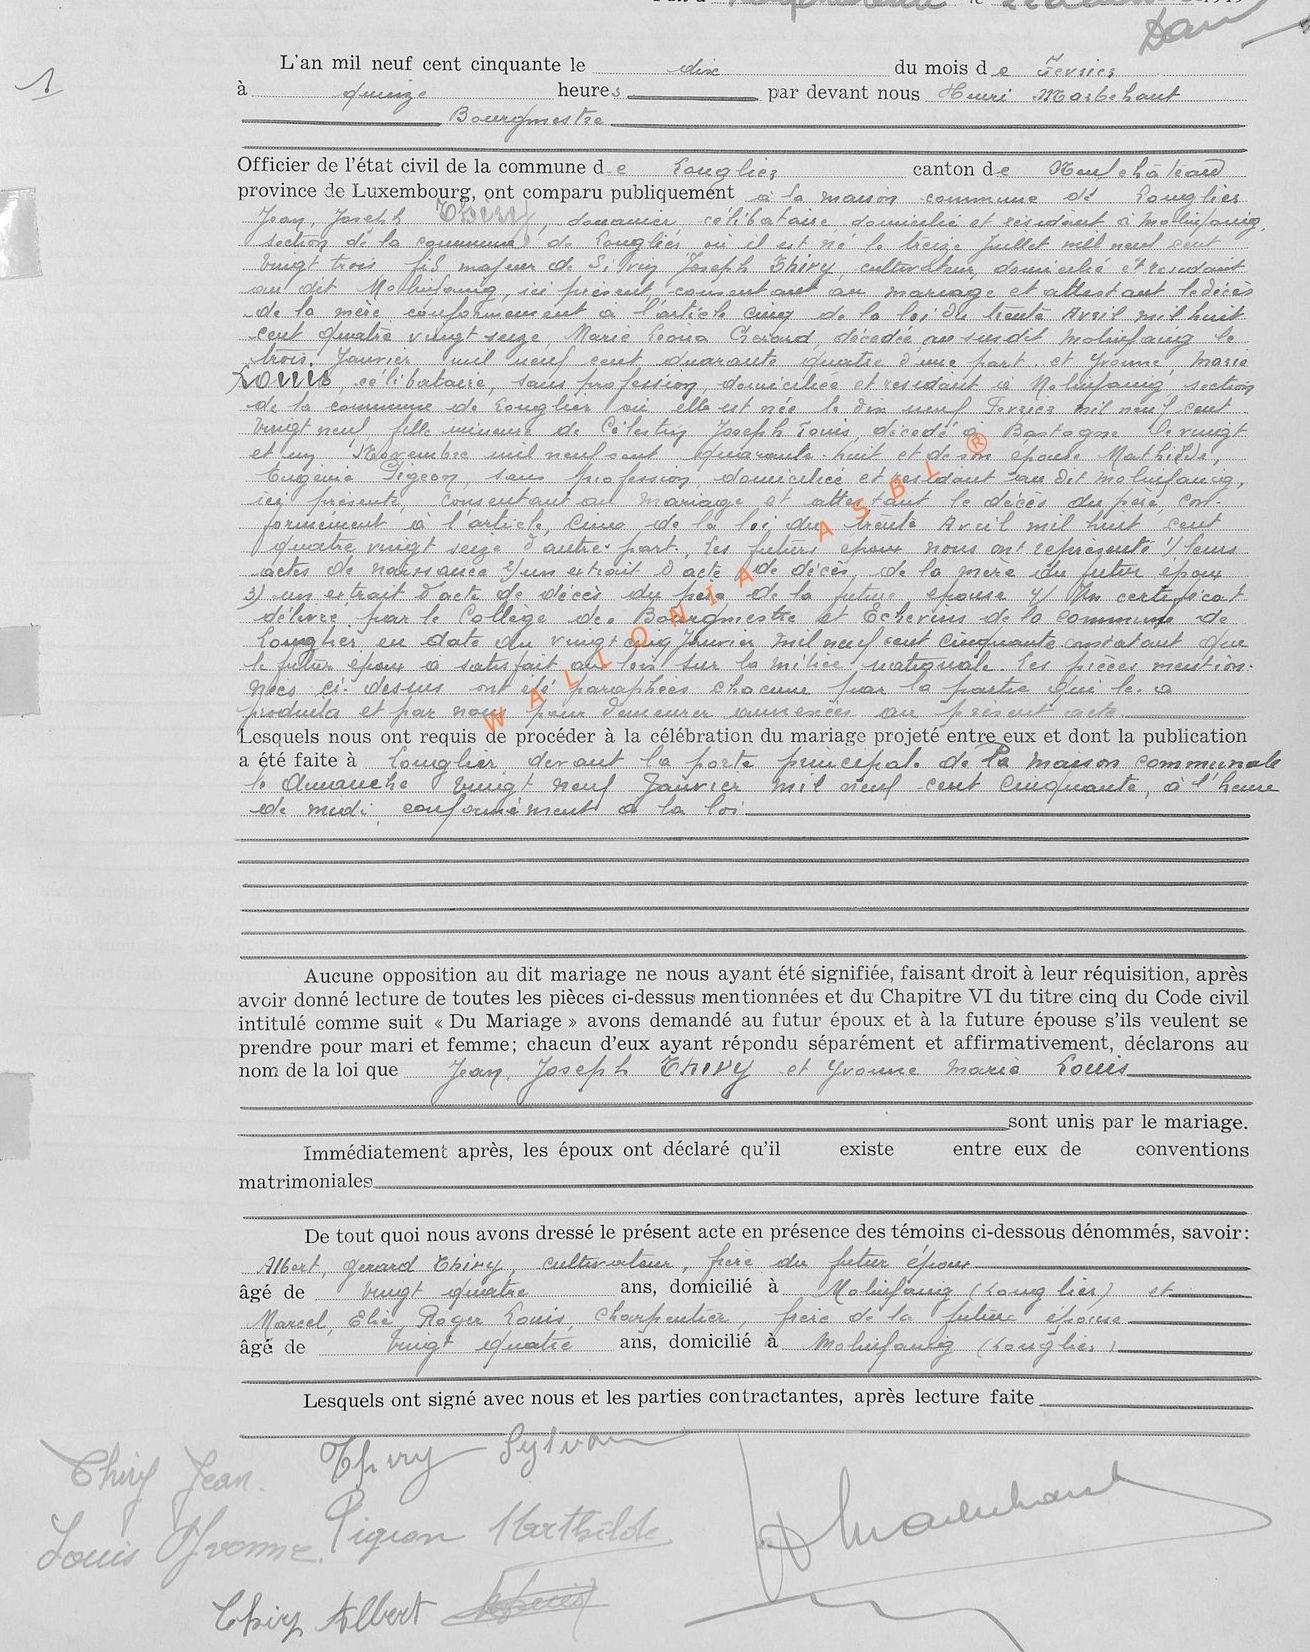 1
L'an mil neuf cent cinquante le dix du mois de Fevrier
à quinze heures par devant nous Henri Marbehant
Bourgmestre
Officier de l'état civil de la commune de Longlier canton de Neufchâteau
province de Luxembourg, ont comparu publiquement à la maison commune de Longlier
Jean, Joseph Thiry, douanier, célibataire, domicilié et résidant à Molinfaing,
section de la commune de Longlier où il est né le treize Juillet mil neuf cent
vingt trois fils majeur de Joseph Thiry, cultivateur, domicilié et residant
au dit Molinfaing, ici présent, consentant au mariage et attestant le décès
de la mère conformement à l'article cinq de la loi du trente Avril mil huit
cent quatre vingt seize, Marie Gerard, décédée au susdit Molinfaing le
trois Janvier mil neuf cent quarante quatre d'une part et Yvonne, Marie
Louis, célibataire, sans profession, domiciliée et residant à Molinfaing, section
de la commune de Longlier où elle est née le dix neuf Fevrier mil neuf cent
vingt neuf, fille mineure de Célestin Joseph Louis, décédé à Bastogne le vingt
et un Novembre mil neuf cent quarante-huit et de son épouse Mathilde,
Eugénie Pigeon, sans profession, domiciliée et residant au dit Molinfaing,
ici présente, consentant au mariage et attestant le décès du père, con-
formement à l'article cinq de la loi du trente Avril mil huit cent
quatre vingt seize d'autre part. Les futurs epoux nous ont représenté 1) leurs
actes de naissance 2) un extrait d'acte de décès, de la mère du futur epoux
3) un extrait d'acte de décès du père de la future epouse 4) Un certificat
délivré par le Collège des Bourgmestre et Echevins de la commune de
Longlier en date du vingt cinq Janvier mil neuf cent cinquante constatant que
le futur epoux a satisfait aux lois sur la milice nationale. Les pièces mention-
nées ci-dessus ont été paraphées chacune par la partie qui les a
produits et par nous pour demeurer annexées au présent acte
WALLONIA ASBL ®
Lesquels nous ont requis de procéder à la célébration du mariage projeté entre eux et dont la publication
a été faite à Longlier devant la porte principale de la maison communale
le dimanche vingt neuf Janvier mil neuf cent cinquante, à l'heure
de midi, conformément à la loi
Aucune opposition au dit mariage ne nous ayant été signifiée, faisant droit à leur réquisition, après
avoir donné lecture de toutes les pièces ci-dessus mentionnées et du Chapitre VI du titre cinq du Code civil
intitulé comme suit « Du Mariage » avons demandé au futur époux et à la future épouse s'ils veulent se
prendre pour mari et femme; chacun d'eux ayant répondu séparément et affirmativement, déclarons au
nom de la loi que Jean, Joseph Thiry et Yvonne Marie Louis
sont unis par le mariage.
Immédiatement après, les époux ont déclaré qu'il existe entre eux de conventions
matrimoniales
De tout quoi nous avons dressé le présent acte en présence des témoins ci-dessous dénommés, savoir:
Albert, Gerard Thiry, cultivateur, frère du futur époux
âgé de vingt quatre ans, domicilié à Molinfaing (Longlier) et
Marcel, Elie, Roger Louis, Charpentier, frère de la future épouse
âgé de vingt quatre ans, domicilié à Molinfaing (Longlier)
Lesquels ont signé avec nous et les parties contractantes, après lecture faite
Thiry Jean. Thiry Sylvain
Louis Yvonne. Pigeon Mathilde
Thiry Albert